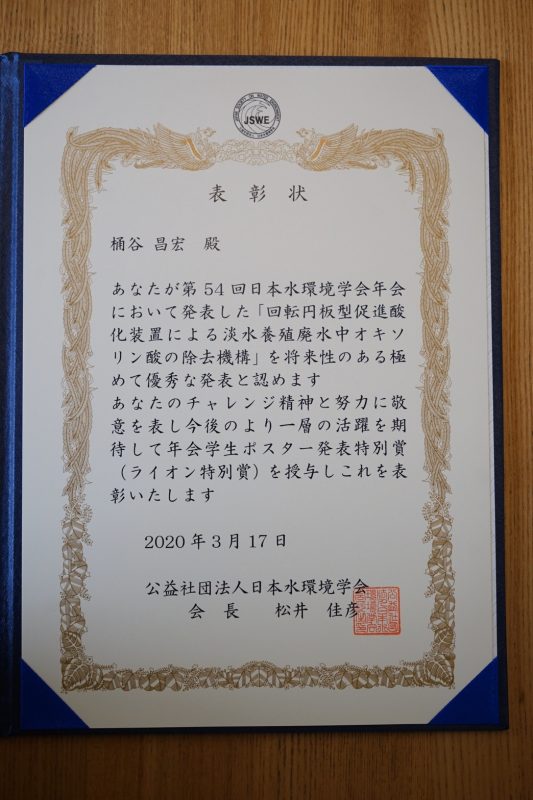 JSWE
表彰状
桶谷 昌宏 殿
あなたが第54回日本水環境学会年会
において発表した「回転円板型促進酸
化装置による淡水養殖廃水中オキソ
リン酸の除去機構」を将来性のある極
めて優秀な発表と認めます
あなたのチャレンジ精神と努力に敬
意を表し今後のより一層の活躍を期
待して年会学生ポスター発表特別賞
（ライオン特別賞）を授与しこれを表
彰いたします
2020年3月17日
公益社団法人日本水環境学会
会 長 松井 佳彦